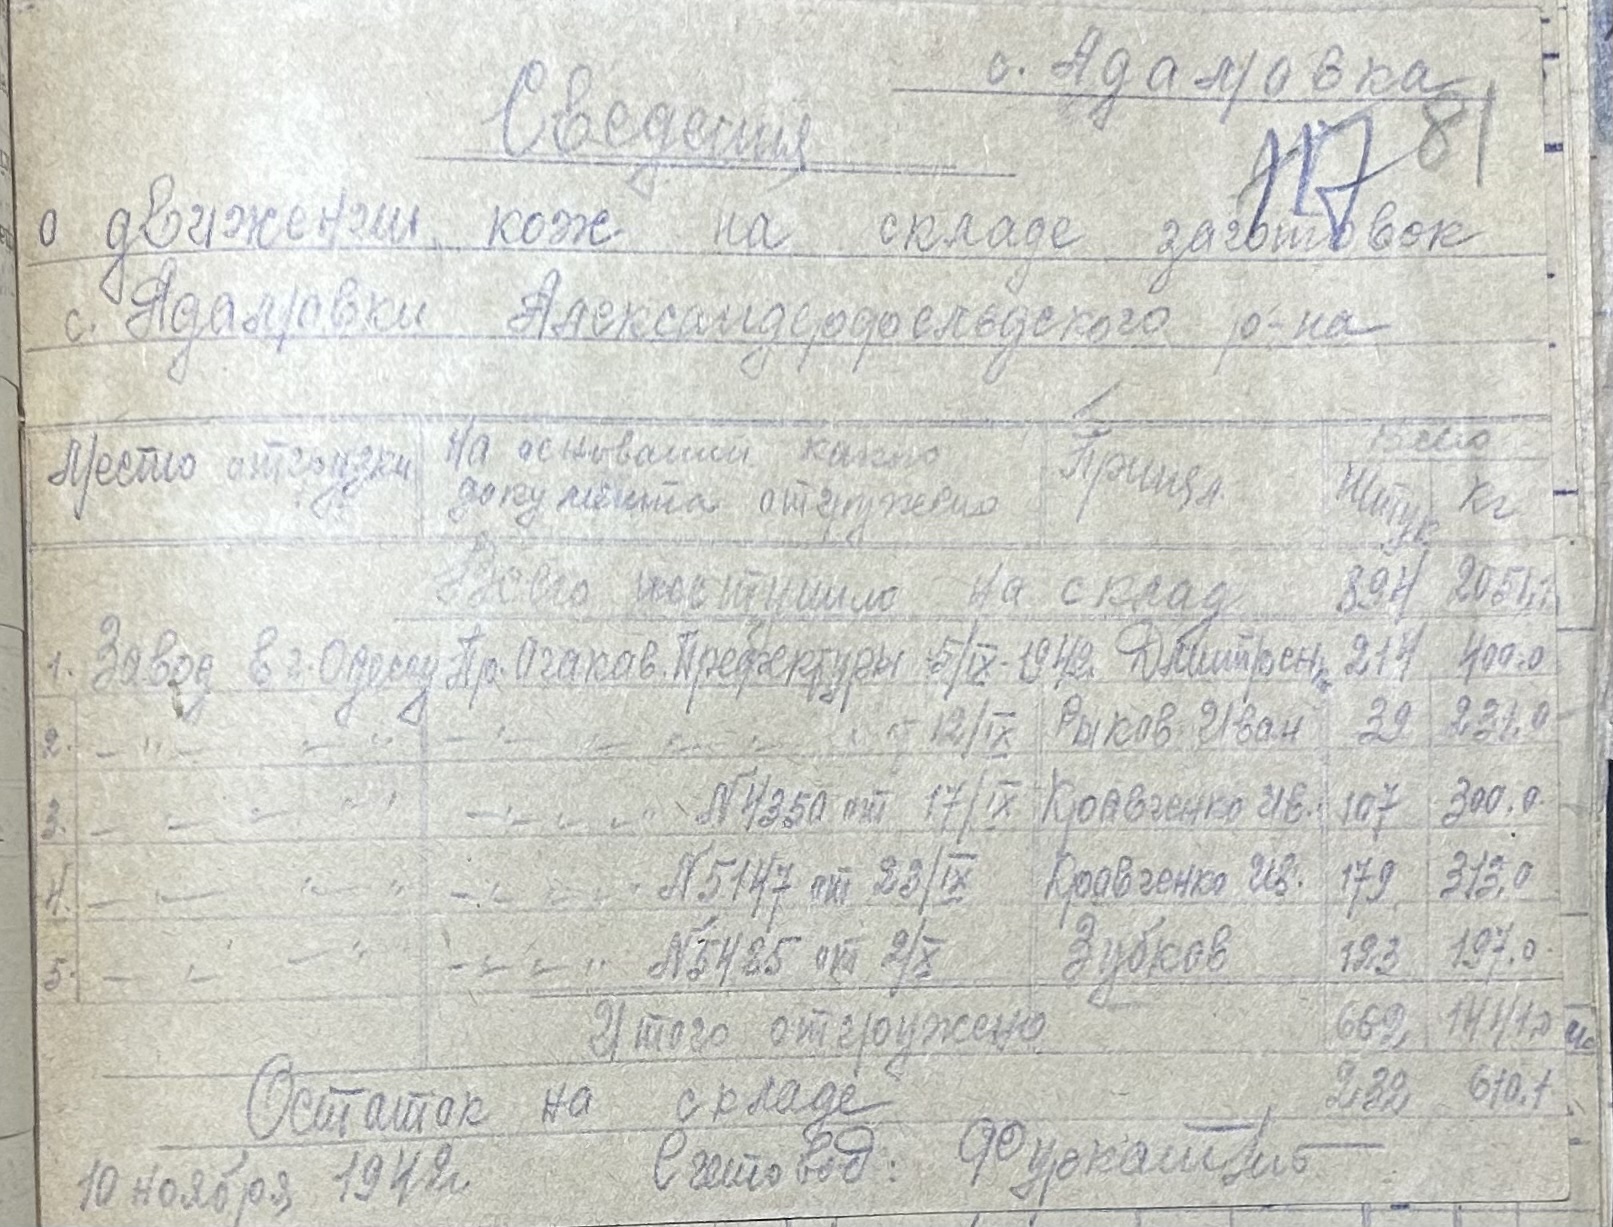 с. Адамовка
81
117
Сведения
о движении кож на складе заготовок
с. Адамовки Александерфельдского р-на
Место отгрузки На основании какого документа отгружено Принял Всего Штук Кг
Всего поступило на склад 894 2051,1
1. Завод в г. Одессу Пр. Очаков. Префектуры 5/IX-1942 Дмитросн 214 400.0
2. — " — " — " — " — " — " — " 12/IX Рыков Иван 39 231,0
3. — " — " — " — " — " N4350 от 17/IX Кравченко Ив. 107 300.0
4. — " — " — " — " — " N5147 от 23/IX Кравченко Ив. 179 313,0
5. — " — " — " — " — " N5485 от 2/X Зубков 123 197.0
Итого отгружено 662 1441.0
Остаток на складе 232 610.1
10 ноября 1942г Счетовод: